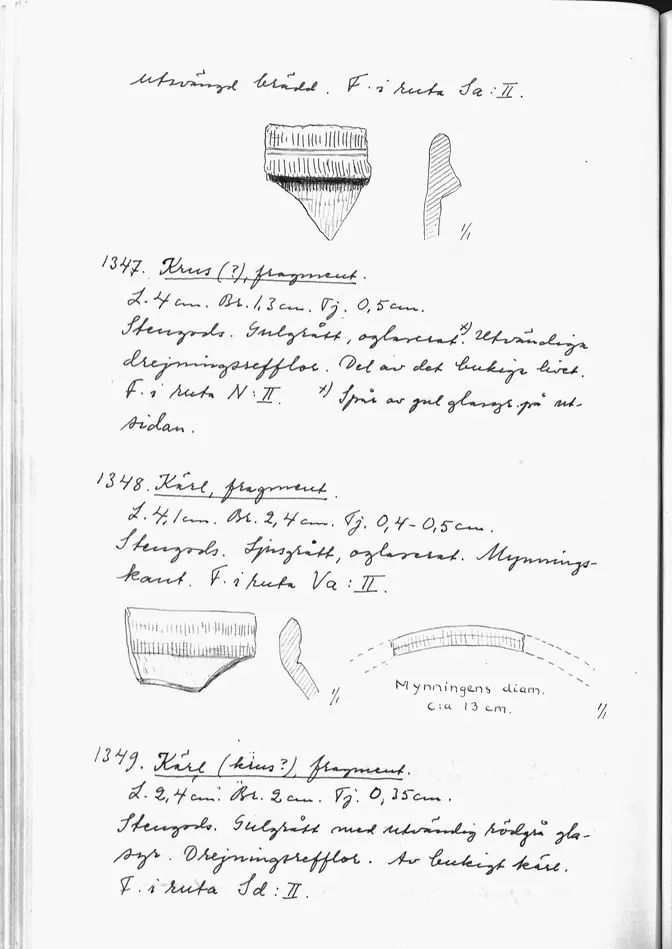 utsvängd brädd. F. i ruta Sa:II.
1/1
1347. Krus (?), fragment.
L. 4 cm. Br. 1,3 cm. Tj. 0,5 cm.
Stengods. Gulgrått, oglaserat. x) Utvändiga
drejningsrefflor. Del av det bukiga livet.
F. i ruta N:II. x) Spår av gul glasyr på ut-
sidan.
1348. Kärl, fragment.
L. 4,1 cm. Br. 2,4 cm. Tj. 0,4-0,5 cm.
Stengods. Ljusgrått, oglaserat. Mynnings-
kant. F. i ruta Va:II.
1/1
Mynningens diam.
c:a 13 cm.
1/1
1349. Kärl (krus?), fragment.
L. 2,4 cm. Br. 2 cm. Tj. 0,35 cm.
Stengods. Gulgrått med utvändig rödgrå gla-
syr. Drejningsrefflor. Av bukigt kärl.
F. i ruta Sd:II.